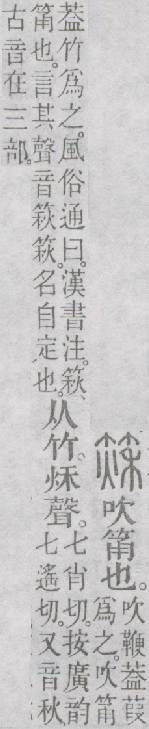 吹筩也。吹鞭葢葭爲之。吹筩
葢竹爲之。風俗通曰。漢書注。篍、筩也。言其聲音篍篍。名自定也。从竹。秌聲。七肖切。按廣韵七遙切。又音秋
古音在三部。